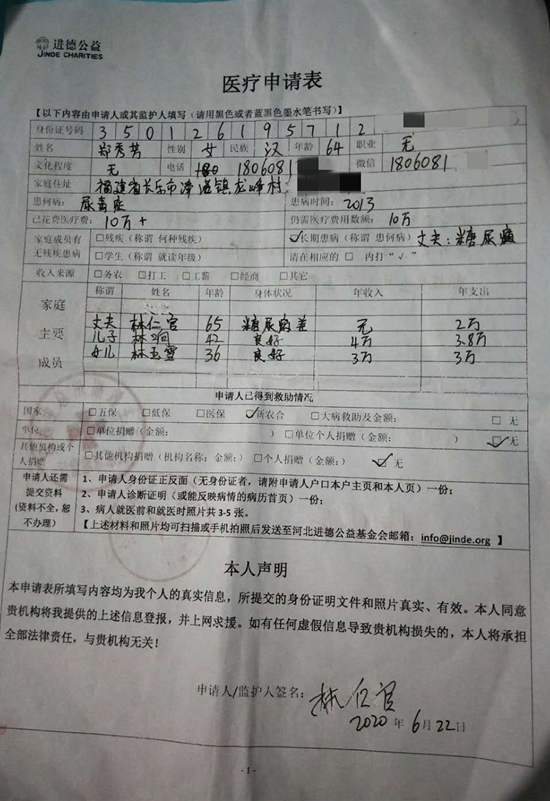 进德公益
JINDE CHARITIES
医疗申请表
【以下内容由申请人或其监护人填写（请用黑色或者蓝黑色墨水笔书写）】
身份证号码 3 5 0 1 2 6 1 9 5 7 1 2
姓名 郑秀芳 性别 女 民族 汉 年龄 64 职业 无
文化程度 无 电话 1806081 微信 1806081
家庭住址 福建省长乐市漳港镇龙峰村
患何病： 尿毒症 患病时间： 2013
已花费医疗费： 10万+ 仍需医疗费用数额： 10万
家庭成员有无残疾患病 □残疾（称谓 何种残疾） ☑长期患病（称谓 患何病） 丈夫：糖尿病
□学生（称谓 就读年级） 请在相应的 □ 内打"√"
收入来源 □务农 □打工 □工薪 □经商 □其它
家庭主要成员 称谓 姓名 年龄 身体状况 年收入 年支出
丈夫 林仁官 65 糖尿病差 无 2万
儿子 林 42 良好 4万 3.8万
女儿 林玉雪 36 良好 3万 3万
申请人已得到救助情况
国家 □五保 □低保 □医保 ☑新农合 □大病救助及金额： □ 无
单位 □单位捐赠（金额： ） □单位个人捐赠（金额： ） ☑ 无
其他机构或个人捐赠 □其他机构捐赠（机构名称：金额：） □个人捐赠（金额： ） ☑ 无
申请人还需提交资料（资料不全，恕不办理）
1、申请人身份证正反面（无身份证者，请附申请人户口本户主页和本人页）一份；
2、申请人诊断证明（或能反映病情的病历首页）一份；
3、病人就医前和就医时照片共 3-5 张。
【上述材料和照片均可扫描或手机拍照后发送至河北进德公益基金会邮箱：info@jinde.org 】
本人声明
本申请表所填写内容均为我个人的真实信息，所提交的身份证明文件和照片真实、有效。本人同意
贵机构将我提供的上述信息登报，并上网求援。如有任何虚假信息导致贵机构损失的，本人将承担
全部法律责任，与贵机构无关！
申请人/监护人签名： 林仁官
2020 年 6 月 22 日
- 1 -